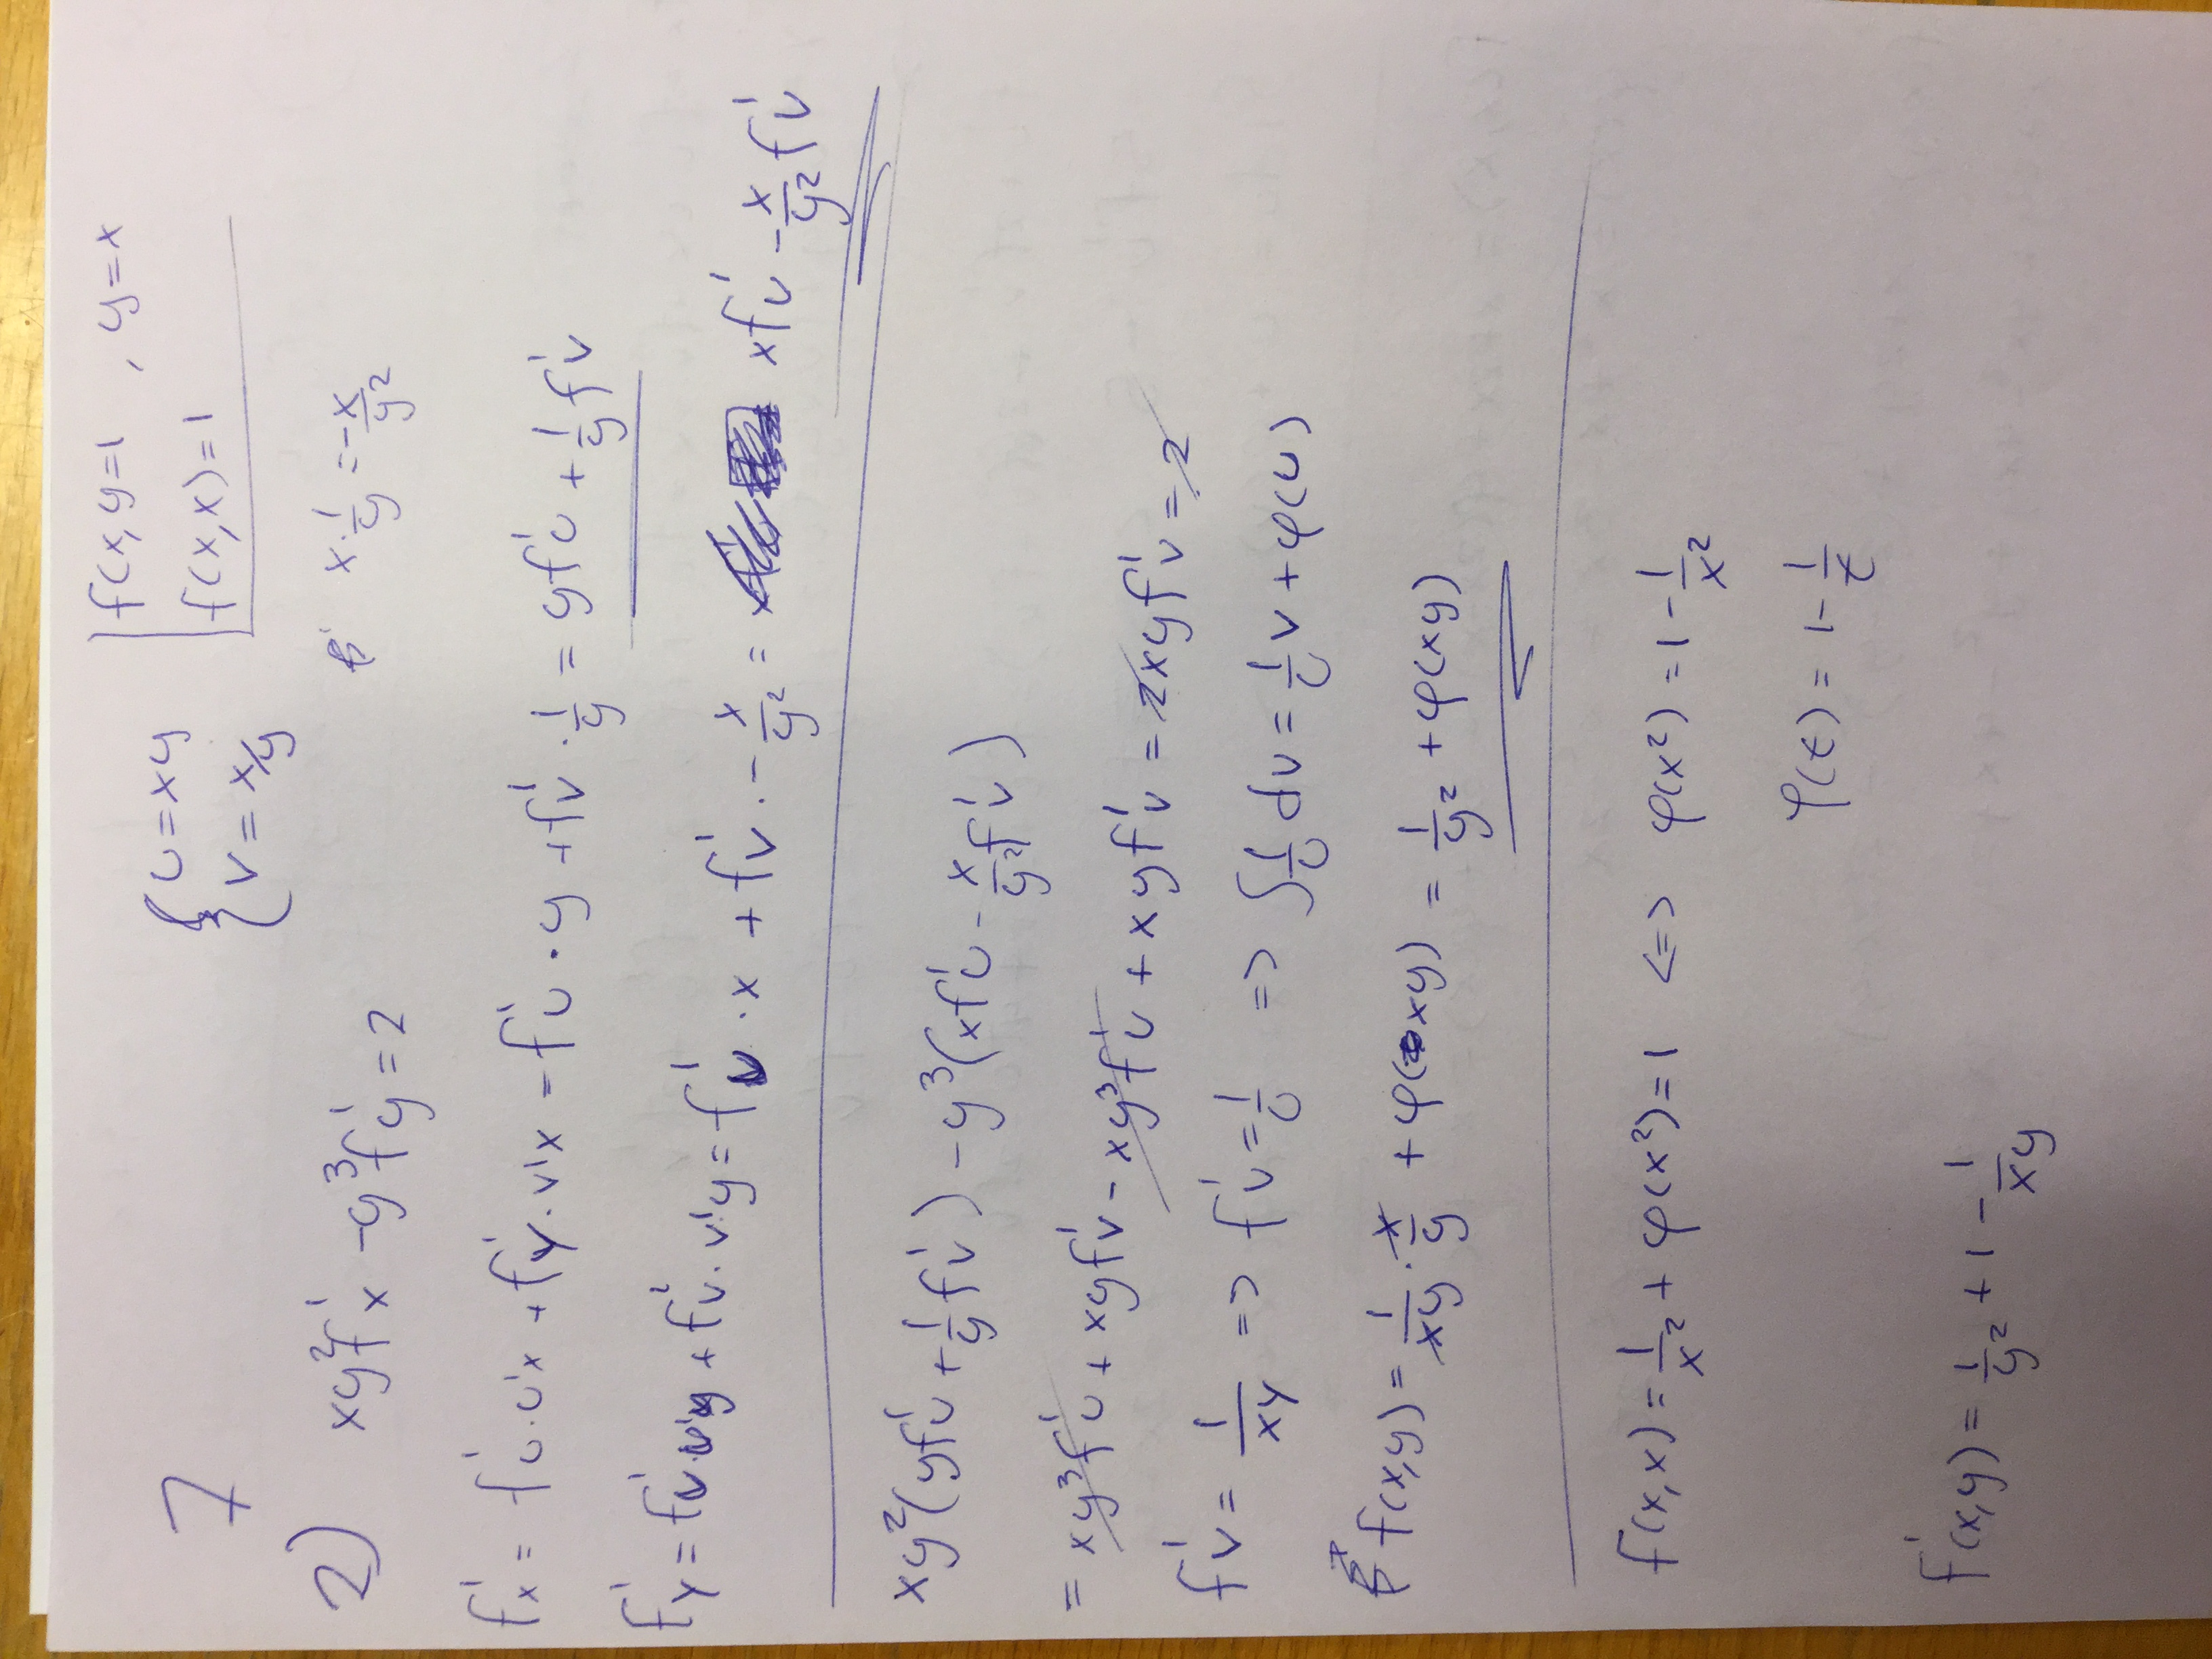 f(x,y=1 , y=x
7
{u=xy
f(x,x)=1
v=x/y
2) xy²f'x -y³f'y=2
x·1/y=-x/y²
f'x= f'u·u'x+f'y·v'x=f'u·y+f'v·1/y=yf'u+1/y f'v
f'y=f'u·u'y+f'v·v'y=f'u·x+f'v·-x/y²= xf'u-x/y² f'v
xy²(yf'u+1/y f'v)-y³(xf'u-x/y² f'v)
= xy³f'u+xyf'v-xy³f'u+xyf'v=2xyf'v=2
f'v=1/xy => f'v=1/u => ∫1/u dv=1/u v+φ(u)
f(x,y)=1/xy·x/y+φ(xy)=1/y²+φ(xy)
f(x,x)=1/x²+φ(x²)=1 <=> φ(x²)=1-1/x²
φ(t)=1-1/t
f'(x,y)=1/y²+1-1/xy